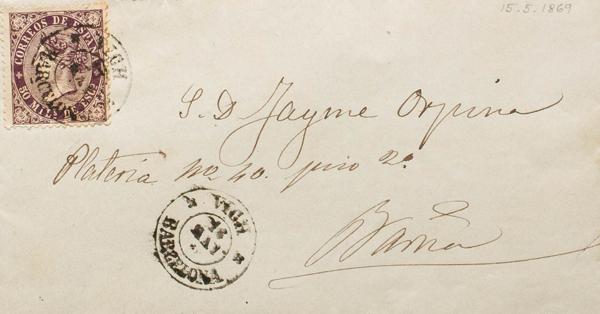 15.5.1869
CORREOS DE ESPAÑA
50 MILS DE ESCO
S. D Jayme Orpina
Plateria no. 40. piso 2o
Barna
VICH
BARCELONA